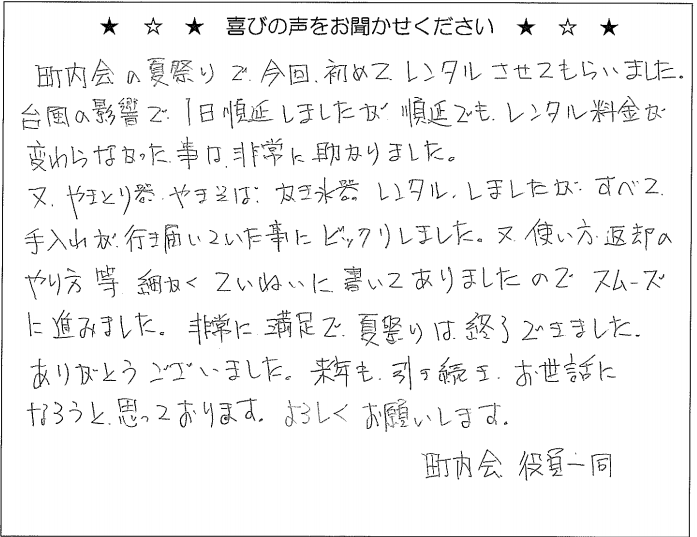 ★ ☆ ★ 喜びの声をお聞かせください ★ ☆ ★
町内会の夏祭りで、今回、初めて、レンタルさせてもらいました。
台風の影響で、1日順延しましたが、順延でも、レンタル料金が
変わらなかった事は、非常に助かりました。
又、やきとり器、やきそば、かき氷器、レンタル、しましたが、すべて、
手入れが、行き届いていた事にビックリしました。又、使い方、返却の
やり方等、細かくていねいに書いてありましたのでスムーズ
に進みました。非常に満足で、夏祭りは、終了できました。
ありがとうございました。来年も、引き続き、お世話に
なろうと、思っております。よろしくお願いします。
町内会、役員一同